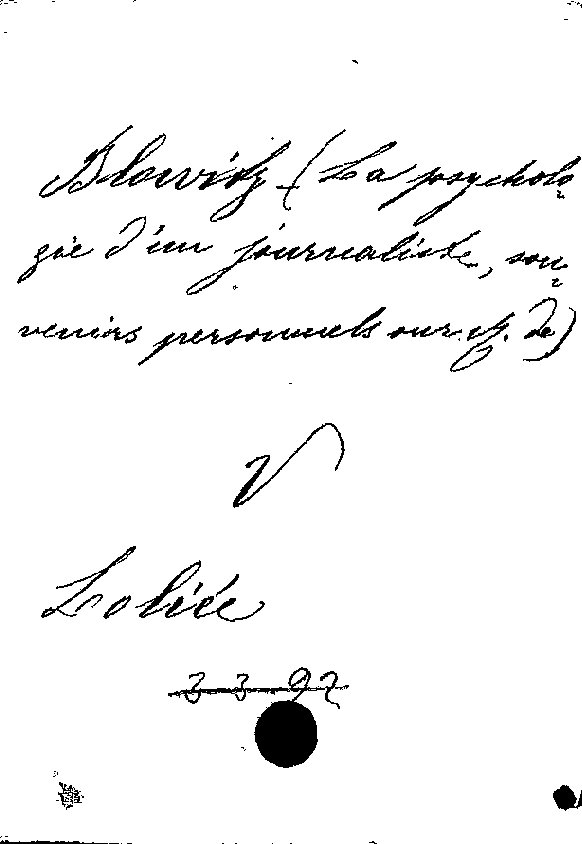 Blowitz (La psycholo-
gie d'un journaliste, sou-
venirs personnels sur M. de)
V
Loliée
3 3 92